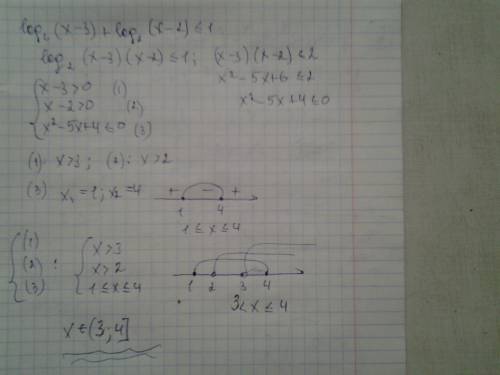 log₂(x-3)+log₂(x-2)≤1
log₂(x-3)(x-2)≤1; (x-3)(x-2)≤2
x²-5x+6≤2
x²-5x+4≤0
{x-3>0 (1)
x-2>0 (2)
x²-5x+4≤0 (3)
(1) x>3; (2): x>2
(3) x₁=1; x₂=4
+ - +
1 4
1≤x≤4
{(1)
(2)
(3) :
{x>3
x>2
1≤x≤4
1 2 3 4
3<x≤4
x∈(3;4]